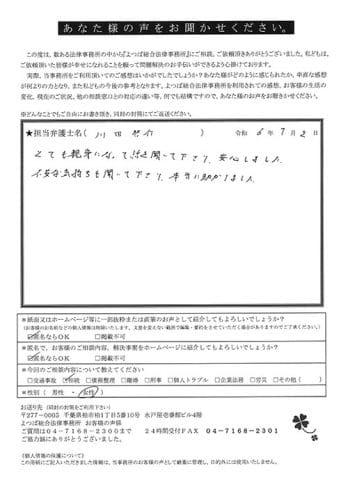 あなた様の声をお聞かせください。
この度は、数ある法律事務所の中から『よつば総合法律事務所』にご相談、ご依頼頂きありがとうございました。私どもは、
ご依頼頂いた皆様が幸せになれることを願って問題解決のお手伝いができるよう心掛けております。
実際、当事務所をご利用頂いてのご感想はいかがでしたでしょうか？あなた様がどのように感じられたか、率直な感想
が何よりの力となり、また私どもの今後の参考となります。よつば総合法律事務所を利用されての感想、お客様の生活の
変化、現在のご状況、他の相談窓口との対応の違い等、何でも結構ですので、あなた様のお声をお聞かせください。
※どんなことでもご自由にお書き頂き、同封の封筒にてご返送ください。
★担当弁護士名( 川田 ) 令和 6年 7月 2日
とても親身になって話を聞いて下さり、安心しました。
不安な気持ちも聞いて下さり、本当に助かりました。
＊紙面又はホームページ等に一部抜粋または直筆のお声として紹介してもよろしいでしょうか？
(お客様のお名前などの個人情報は削除いたします。文意を変えない範囲で編集・要約をさせていただく場合がありますのでご了承ください)
☑匿名ならOK □掲載不可
＊匿名で、お客様のご相談内容、解決事案をホームページに紹介してもよろしいでしょうか？
☑匿名ならOK □掲載不可
＊今回のご相談内容について教えてください
□交通事故 ☑相続 □債務整理 □離婚 □刑事 □個人トラブル □企業法務 □労災 □その他( )
＊性別( 男性 ・ 女性 )
お送り先 (同封の封筒をご利用下さい)
〒277-0005 千葉県柏市柏1丁目5番10号 水戸屋壱番館ビル4階
よつば総合法律事務所 お客様の声係
ご質問は04-7168-2300まで 24時間受付FAX 04-7168-2301
ご協力誠にありがとうございました。
(個人情報の保護について)
この用紙にご記入いただきました情報は、当事務所のお客様の声として厳重に管理し、目的外には使用いたしません。